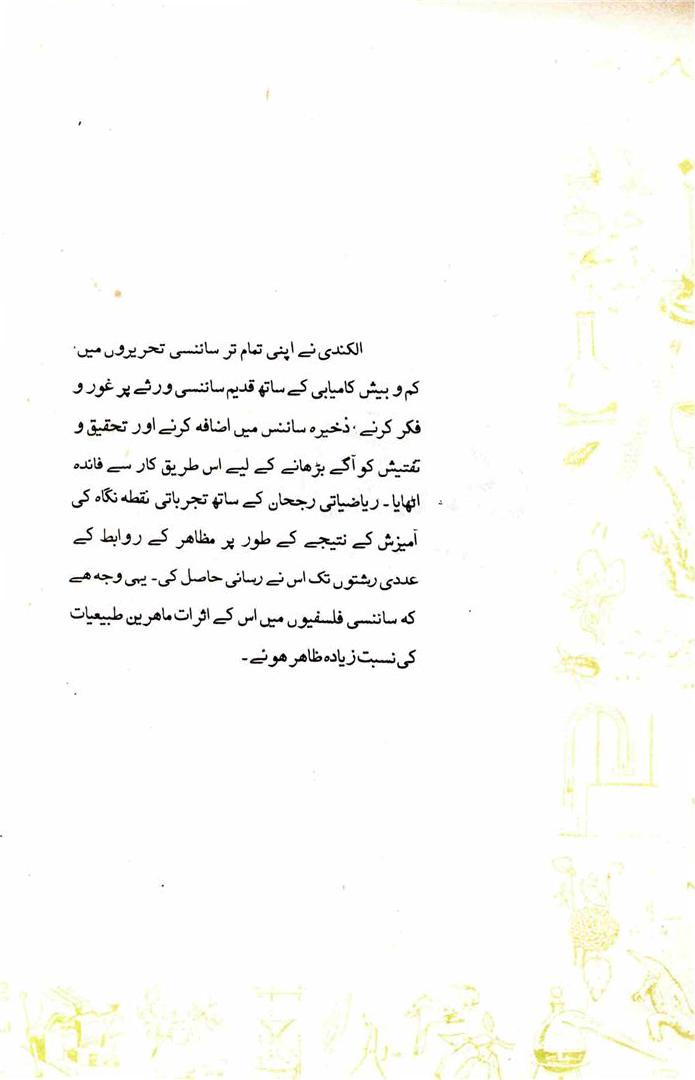 الکندی نے اپنی تمام تر سائنسی تحریروں میں،
کم و بیش کامیابی کے ساتھ قدیم سائنسی ورثے پر غور و
فکر کرنے، ذخیرہ سائنس میں اضافہ کرنے اور تحقیق و
تفتیش کو آگے بڑھانے کے لیے اس طریق کار سے فائدہ
اٹھایا۔ ریاضیاتی رجحان کے ساتھ تجرباتی نقطہ نگاہ کی
آمیزش کے نتیجے کے طور پر مظاہر کے روابط کے
عددی رشتوں تک اس نے رسائی حاصل کی۔ یہی وجہ ہے
کہ سائنسی فلسفیوں میں اس کے اثرات ماہرین طبیعیات
کی نسبت زیادہ ظاہر ہوئے۔